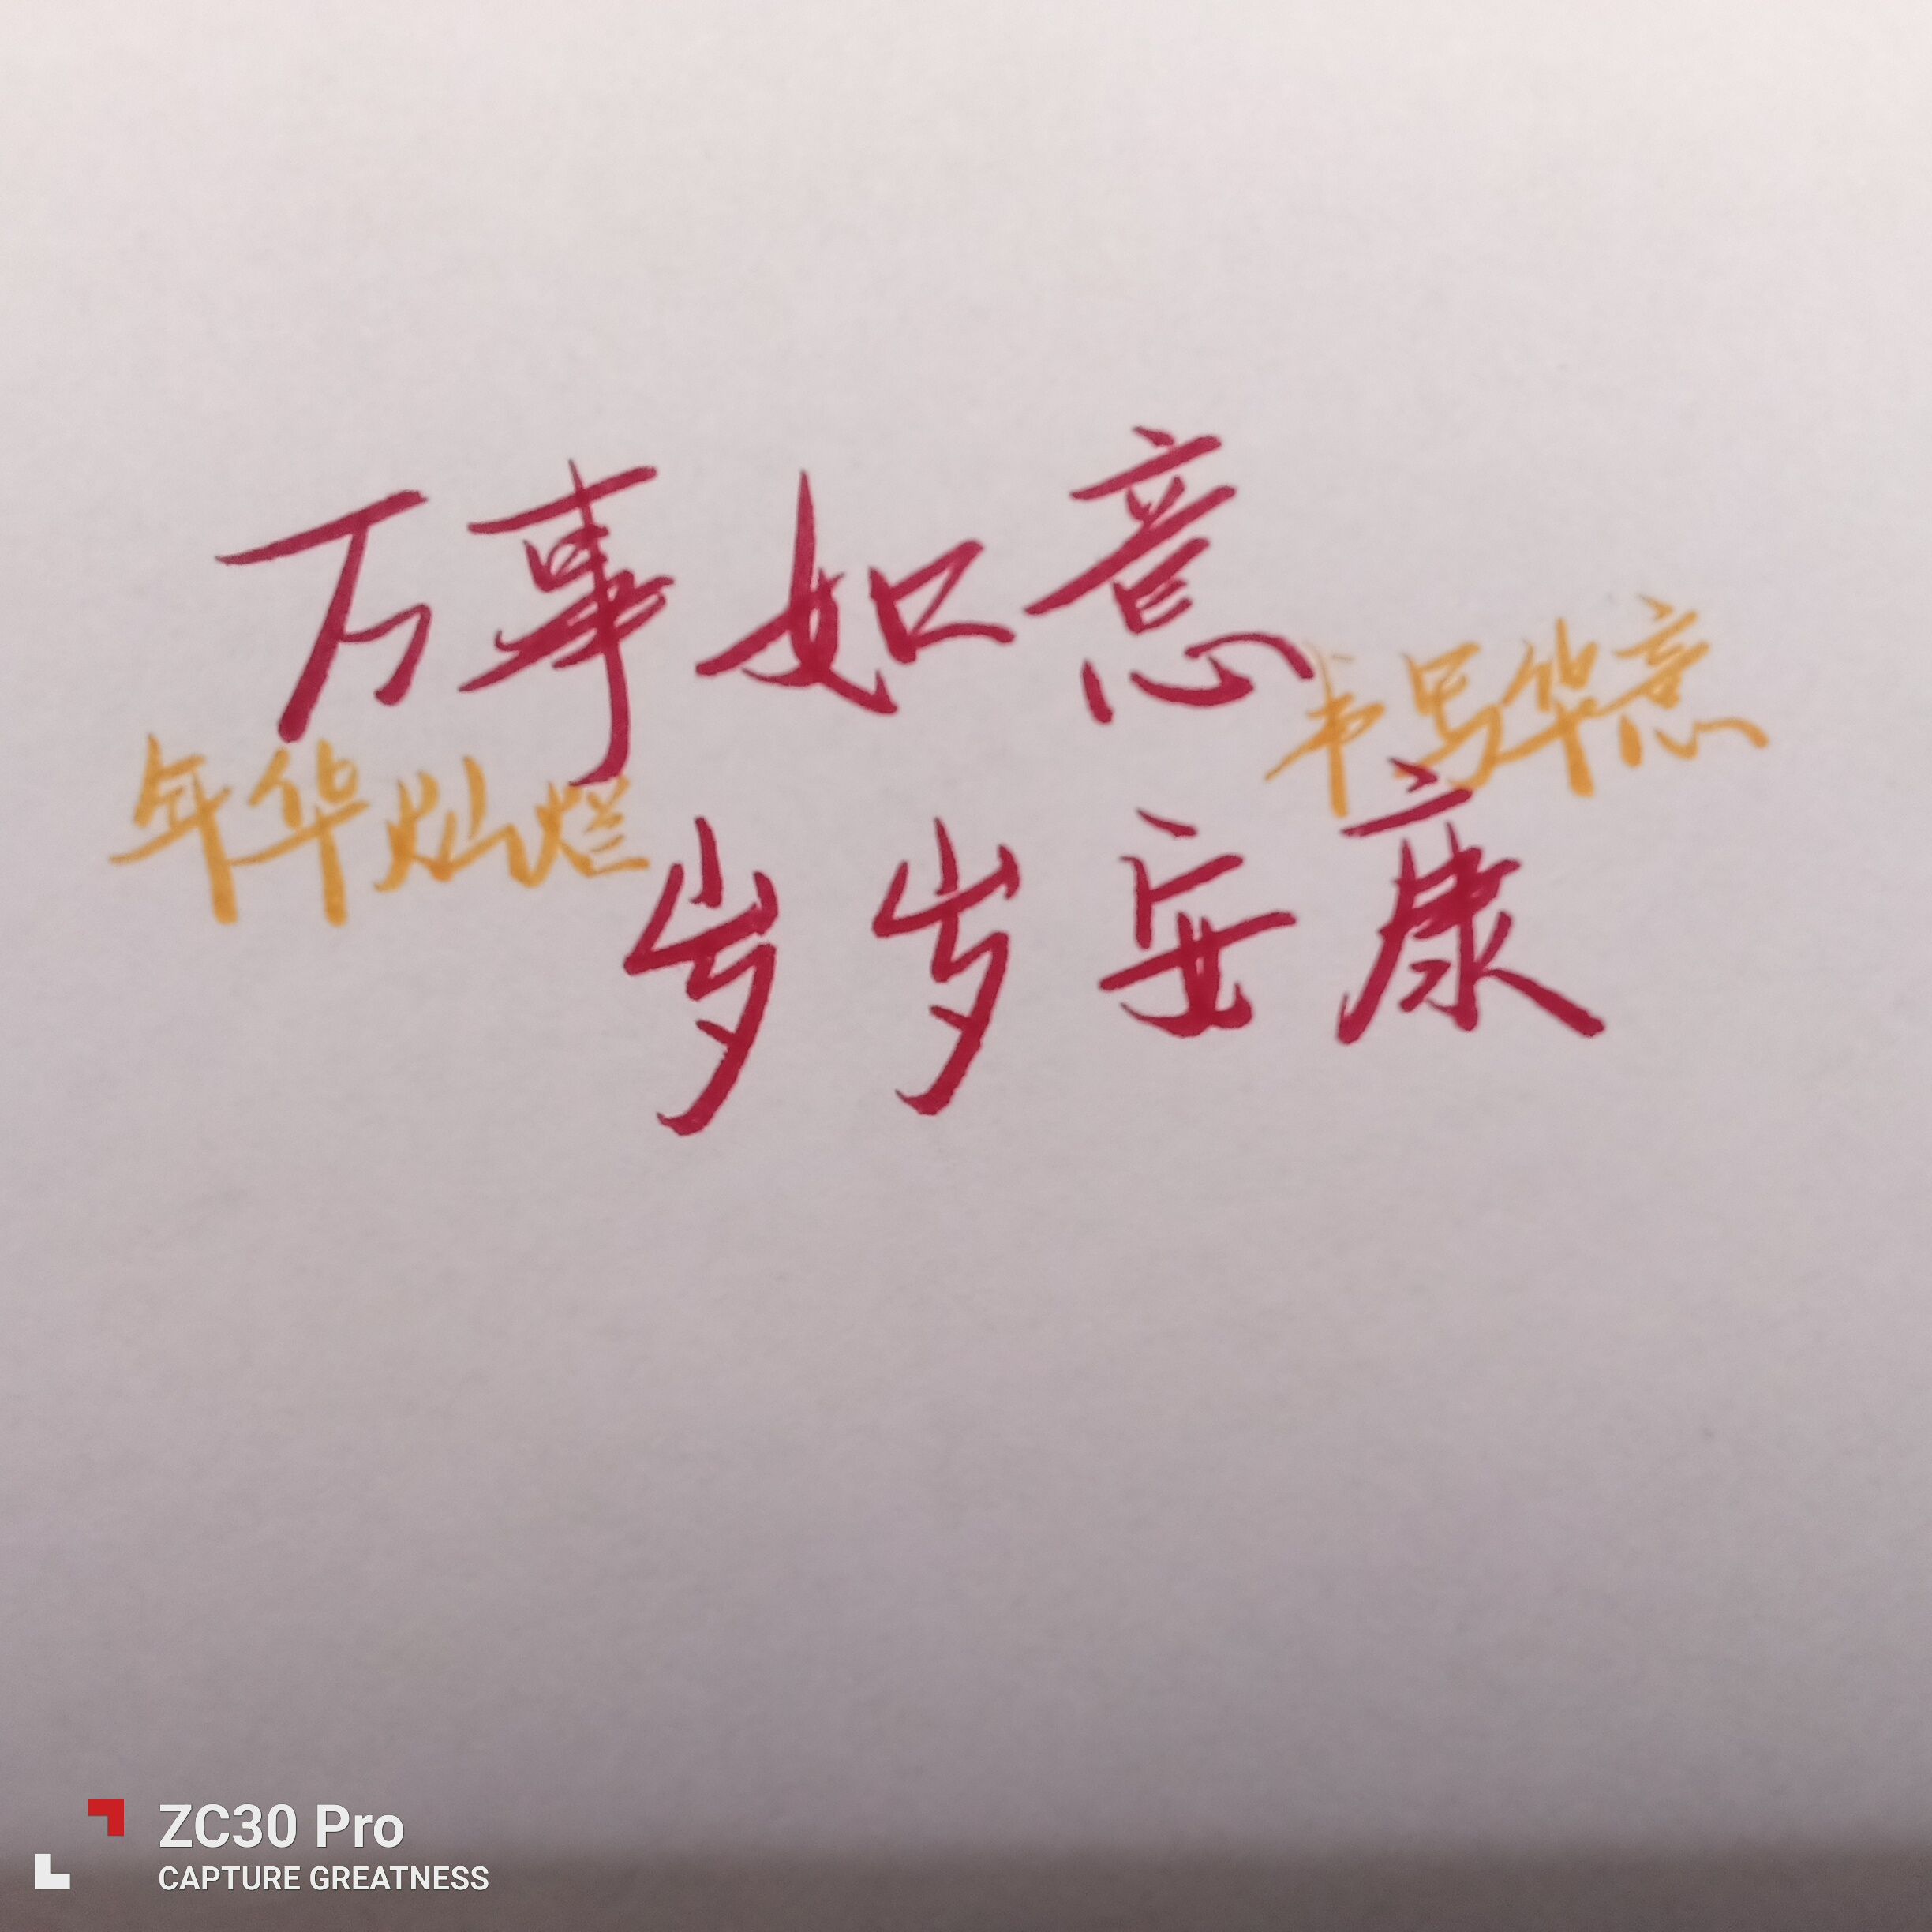 万事如意
书写华意
年华灿烂
岁岁安康
ZC30 Pro
CAPTURE GREATNESS